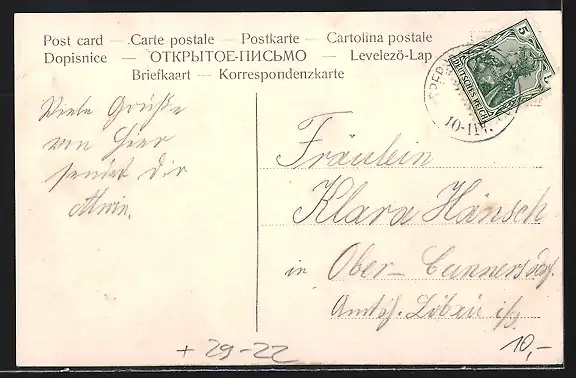 Post card — Carte postale — Postkarte — Cartolina postale
Dopisnice — ОТКРЫТОЕ-ПИСЬМО — Levelező-Lap
Briefkaart — Korrespondenzkarte
Viele Grüße
von hier
sendet dir
Fräulein
Klara Hänsch
in Ober-Cunnersdorf
Amtsh. Löbau i/S
5
DEUTSCHES REICH
10-11V.
+ 29-22
10,-